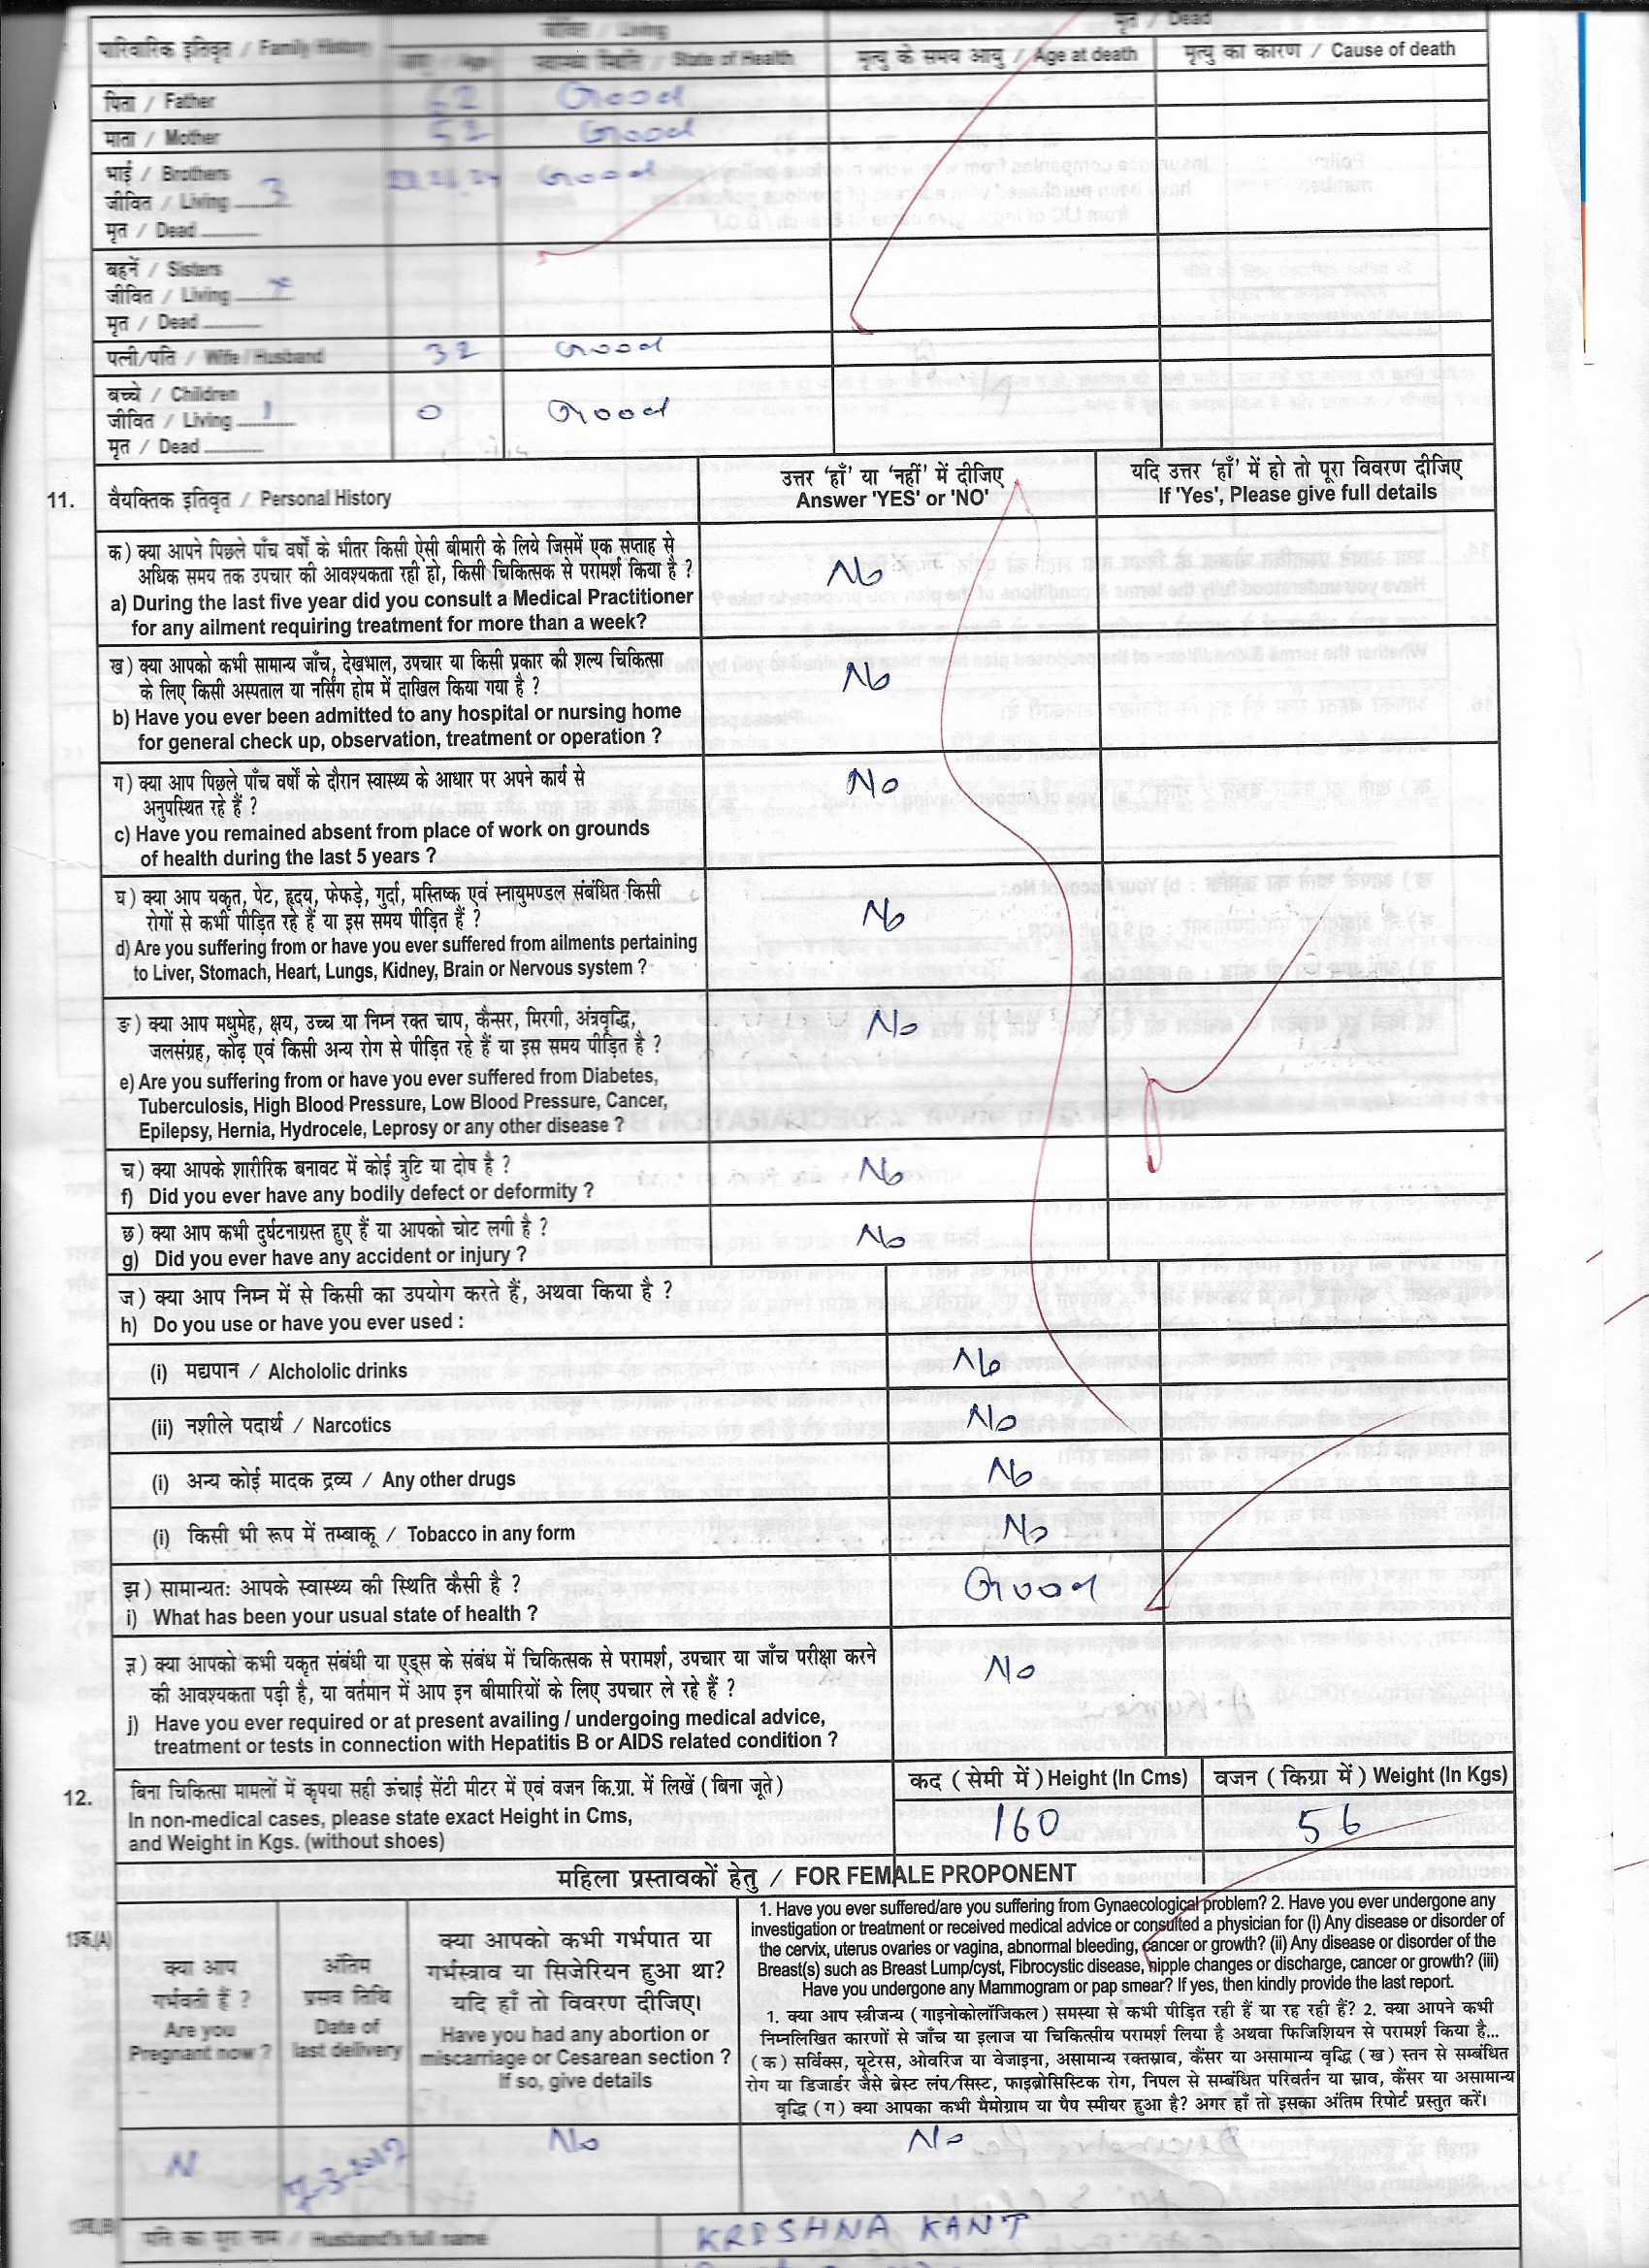 जीवित / Living
मृत / Dead
पारिवारिक इतिवृत / Family History
आयु / Age
स्वास्थ्य स्थिति / State of Health
मृत्यु के समय आयु / Age at death
मृत्यु का कारण / Cause of death
पिता / Father 62 Good
माता / Mother 52 Good
भाई / Brothers Good
जीवित / Living 3
मृत / Dead
बहनें / Sisters
जीवित / Living
मृत / Dead
पत्नी/पति / Wife / Husband 32 Good
बच्चे / Children
जीवित / Living 1 0 Good
मृत / Dead
11. वैयक्तिक इतिवृत / Personal History
उत्तर 'हाँ' या 'नहीं' में दीजिए
Answer 'YES' or 'NO'
यदि उत्तर 'हाँ' में हो तो पूरा विवरण दीजिए
If 'Yes', Please give full details
क) क्या आपने पिछले पाँच वर्षों के भीतर किसी ऐसी बीमारी के लिये जिसमें एक सप्ताह से
अधिक समय तक उपचार की आवश्यकता रही हो, किसी चिकित्सक से परामर्श किया है ?
a) During the last five year did you consult a Medical Practitioner
for any ailment requiring treatment for more than a week?
No
ख) क्या आपको कभी सामान्य जाँच, देखभाल, उपचार या किसी प्रकार की शल्य चिकित्सा
के लिए किसी अस्पताल या नर्सिंग होम में दाखिल किया गया है ?
b) Have you ever been admitted to any hospital or nursing home
for general check up, observation, treatment or operation ?
No
ग) क्या आप पिछले पाँच वर्षों के दौरान स्वास्थ्य के आधार पर अपने कार्य से
अनुपस्थित रहे हैं ?
c) Have you remained absent from place of work on grounds
of health during the last 5 years ?
No
घ) क्या आप यकृत, पेट, हृदय, फेफड़े, गुर्दा, मस्तिष्क एवं स्नायुमण्डल संबंधित किसी
रोगों से कभी पीड़ित रहे हैं या इस समय पीड़ित हैं ?
d) Are you suffering from or have you ever suffered from ailments pertaining
to Liver, Stomach, Heart, Lungs, Kidney, Brain or Nervous system ?
No
ङ) क्या आप मधुमेह, क्षय, उच्च या निम्न रक्त चाप, कैन्सर, मिरगी, अंत्रवृद्धि,
जलसंग्रह, कोढ़ एवं किसी अन्य रोग से पीड़ित रहे हैं या इस समय पीड़ित है ?
e) Are you suffering from or have you ever suffered from Diabetes,
Tuberculosis, High Blood Pressure, Low Blood Pressure, Cancer,
Epilepsy, Hernia, Hydrocele, Leprosy or any other disease ?
No
च) क्या आपके शारीरिक बनावट में कोई त्रुटि या दोष है ?
f) Did you ever have any bodily defect or deformity ?
No
छ) क्या आप कभी दुर्घटनाग्रस्त हुए हैं या आपको चोट लगी है ?
g) Did you ever have any accident or injury ?
No
ज) क्या आप निम्न में से किसी का उपयोग करते हैं, अथवा किया है ?
h) Do you use or have you ever used :
(i) मद्यपान / Alchololic drinks No
(ii) नशीले पदार्थ / Narcotics No
(i) अन्य कोई मादक द्रव्य / Any other drugs No
(i) किसी भी रूप में तम्बाकू / Tobacco in any form No
झ) सामान्यतः आपके स्वास्थ्य की स्थिति कैसी है ?
i) What has been your usual state of health ?
Good
ञ) क्या आपको कभी यकृत संबंधी या एड्स के संबंध में चिकित्सक से परामर्श, उपचार या जाँच परीक्षा करने
की आवश्यकता पड़ी है, या वर्तमान में आप इन बीमारियों के लिए उपचार ले रहे हैं ?
j) Have you ever required or at present availing / undergoing medical advice,
treatment or tests in connection with Hepatitis B or AIDS related condition ?
No
12. बिना चिकित्सा मामलों में कृपया सही ऊंचाई सेंटी मीटर में एवं वजन कि.ग्रा. में लिखें (बिना जूते)
In non-medical cases, please state exact Height in Cms,
and Weight in Kgs. (without shoes)
कद (सेमी में) Height (In Cms)
वजन (किग्रा में) Weight (In Kgs)
160
56
महिला प्रस्तावकों हेतु / FOR FEMALE PROPONENT
क्या आप
गर्भवती हैं ?
Are you
Pregnant now ?
अंतिम
प्रसव तिथि
Date of
last delivery
क्या आपको कभी गर्भपात या
गर्भस्त्राव या सिजेरियन हुआ था?
यदि हाँ तो विवरण दीजिए।
Have you had any abortion or
miscarriage or Cesarean section ?
If so, give details
1. Have you ever suffered/are you suffering from Gynaecological problem? 2. Have you ever undergone any
investigation or treatment or received medical advice or consulted a physician for (i) Any disease or disorder of
the cervix, uterus ovaries or vagina, abnormal bleeding, cancer or growth? (ii) Any disease or disorder of the
Breast(s) such as Breast Lump/cyst, Fibrocystic disease, nipple changes or discharge, cancer or growth? (iii)
Have you undergone any Mammogram or pap smear? If yes, then kindly provide the last report.
1. क्या आप स्त्रीजन्य (गाइनोकोलॉजिकल) समस्या से कभी पीड़ित रही हैं या रह रही हैं? 2. क्या आपने कभी
निम्नलिखित कारणों से जाँच या इलाज या चिकित्सीय परामर्श लिया है अथवा फिजिशियन से परामर्श किया है...
(क) सर्विक्स, यूटेरस, ओवरिज या वेजाइना, असामान्य रक्तस्राव, कैंसर या असामान्य वृद्धि (ख) स्तन से सम्बंधित
रोग या डिजार्डर जैसे ब्रेस्ट लंप/सिस्ट, फाइब्रोसिस्टिक रोग, निपल से सम्बंधित परिवर्तन या स्राव, कैंसर या असामान्य
वृद्धि (ग) क्या आपका कभी मैमोग्राम या पैप स्मीयर हुआ है? अगर हाँ तो इसका अंतिम रिपोर्ट प्रस्तुत करें।
N
7-3-2017
No
No
पति का पूरा नाम / Husband's full name KRISHNA KANT